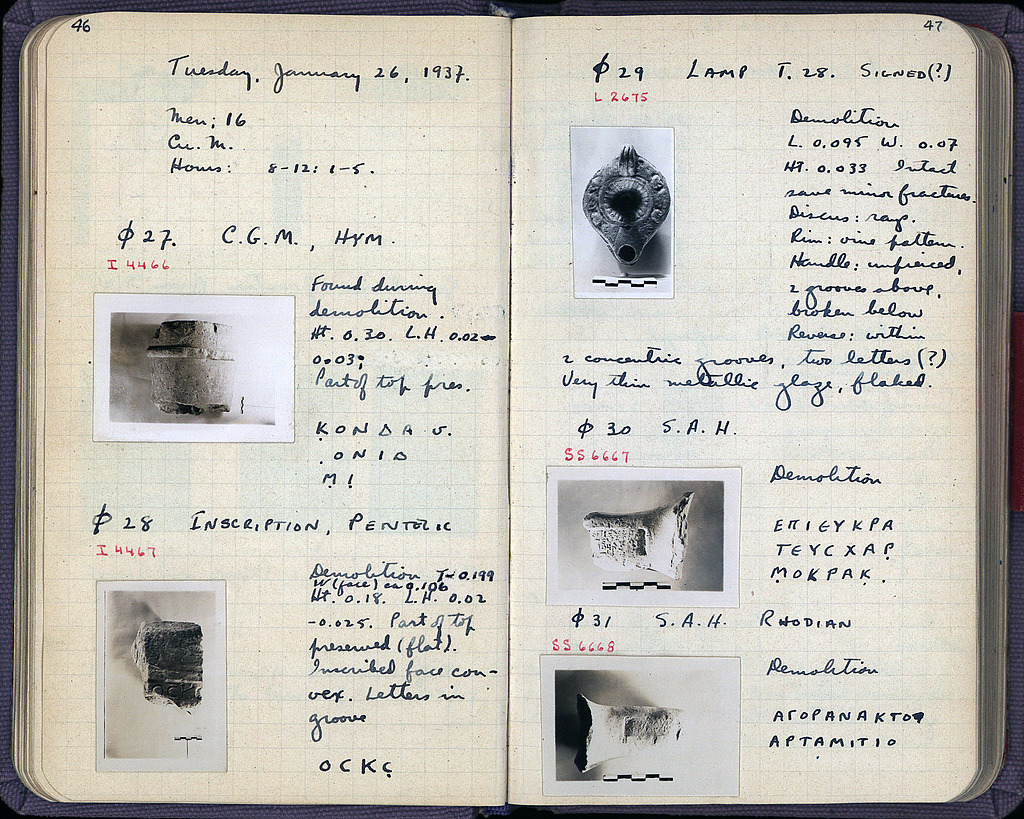 46
Tuesday, January 26, 1937.
Men; 16
Cu. M.
Hours: 8-12: 1-5.
Φ 27. C.G.M., HYM.
I 4466
Found during
demolition.
Ht. 0.30. L.H. 0.02-
0.03;
Part of top pres.
ΚΟΝΔΑ υ.
.ΟΝΙΔ
Μ Ι
Φ 28 INSCRIPTION, PENTELIC
I 4467
Demolition T-0.199
W (face) ca 0.106
Ht. 0.18. L.H. 0.02
-0.025. Part of top
preserved (flat).
Inscribed face con-
vex. Letters in
groove
ΟϹΚϹ̣
47
Φ 29 LAMP T. 28. SIGNED(?)
L 2675
Demolition
L. 0.095 W. 0.07
Ht. 0.033 Intact
save minor fractures.
Discus: rays.
Rim: vine pattern.
Handle: unpierced,
2 grooves above,
broken below
Reverse: within
2 concentric grooves, two letters (?)
Very thin metallic glaze, flaked.
Φ 30 S.A.H.
SS 6667
Demolition
ΕΠΙΕΥΚΡΑ
ΤΕΥϹΧΑΡ̣
Μ̣ΟΚΡΑΚ.
Φ 31 S.A.H. RHODIAN
SS 6668
Demolition
ΑΓΟΡΑΝΑΚΤΟϹ
ΑΡΤΑΜΙΤΙΟ